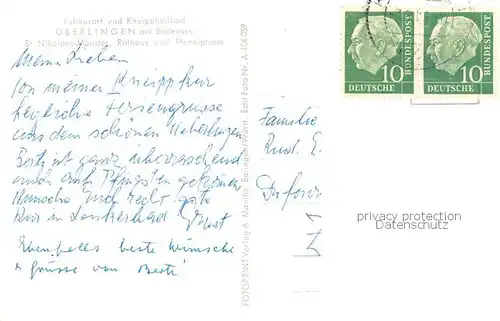 Luftkurort und Kneippheilbad
ÜBERLINGEN am Bodensee
St. Nikolaus-Münster, Rathaus und Pfennigturm
Meine Lieben
Von meiner Kneippkur
herzliche Feriengrüsse
aus dem schönen Ueberlingen
Berti ist ganz überraschend
auch auf Pfingsten gekommen
Wünsche Euch recht gute
Kur in
Ebenfalls beste Wünsche
+ Grüsse von Berti
FOTOPRINT Verlag A. Mauthe Balingen/Württ. Echt Foto Nr. A 106 059
Familie
Rud. E.
10
DEUTSCHE
BUNDESPOST
10
DEUTSCHE
BUNDESPOST
privacy protection
Datenschutz